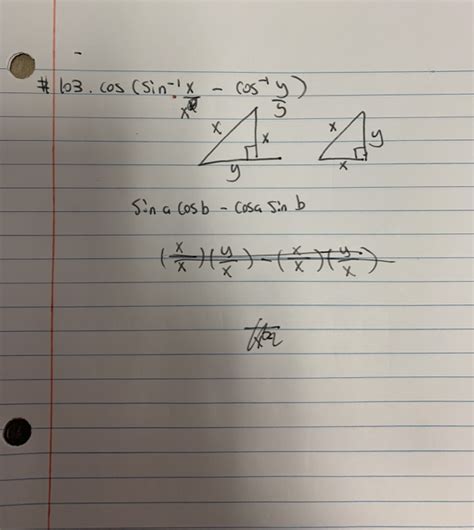 # 103. cos (Sin⁻¹ x/x - cos⁻¹ y/5)
x x y
x y x
Sin a cos b - cosa Sin b
(x/x)(y/x) - (x/x)(y/x)